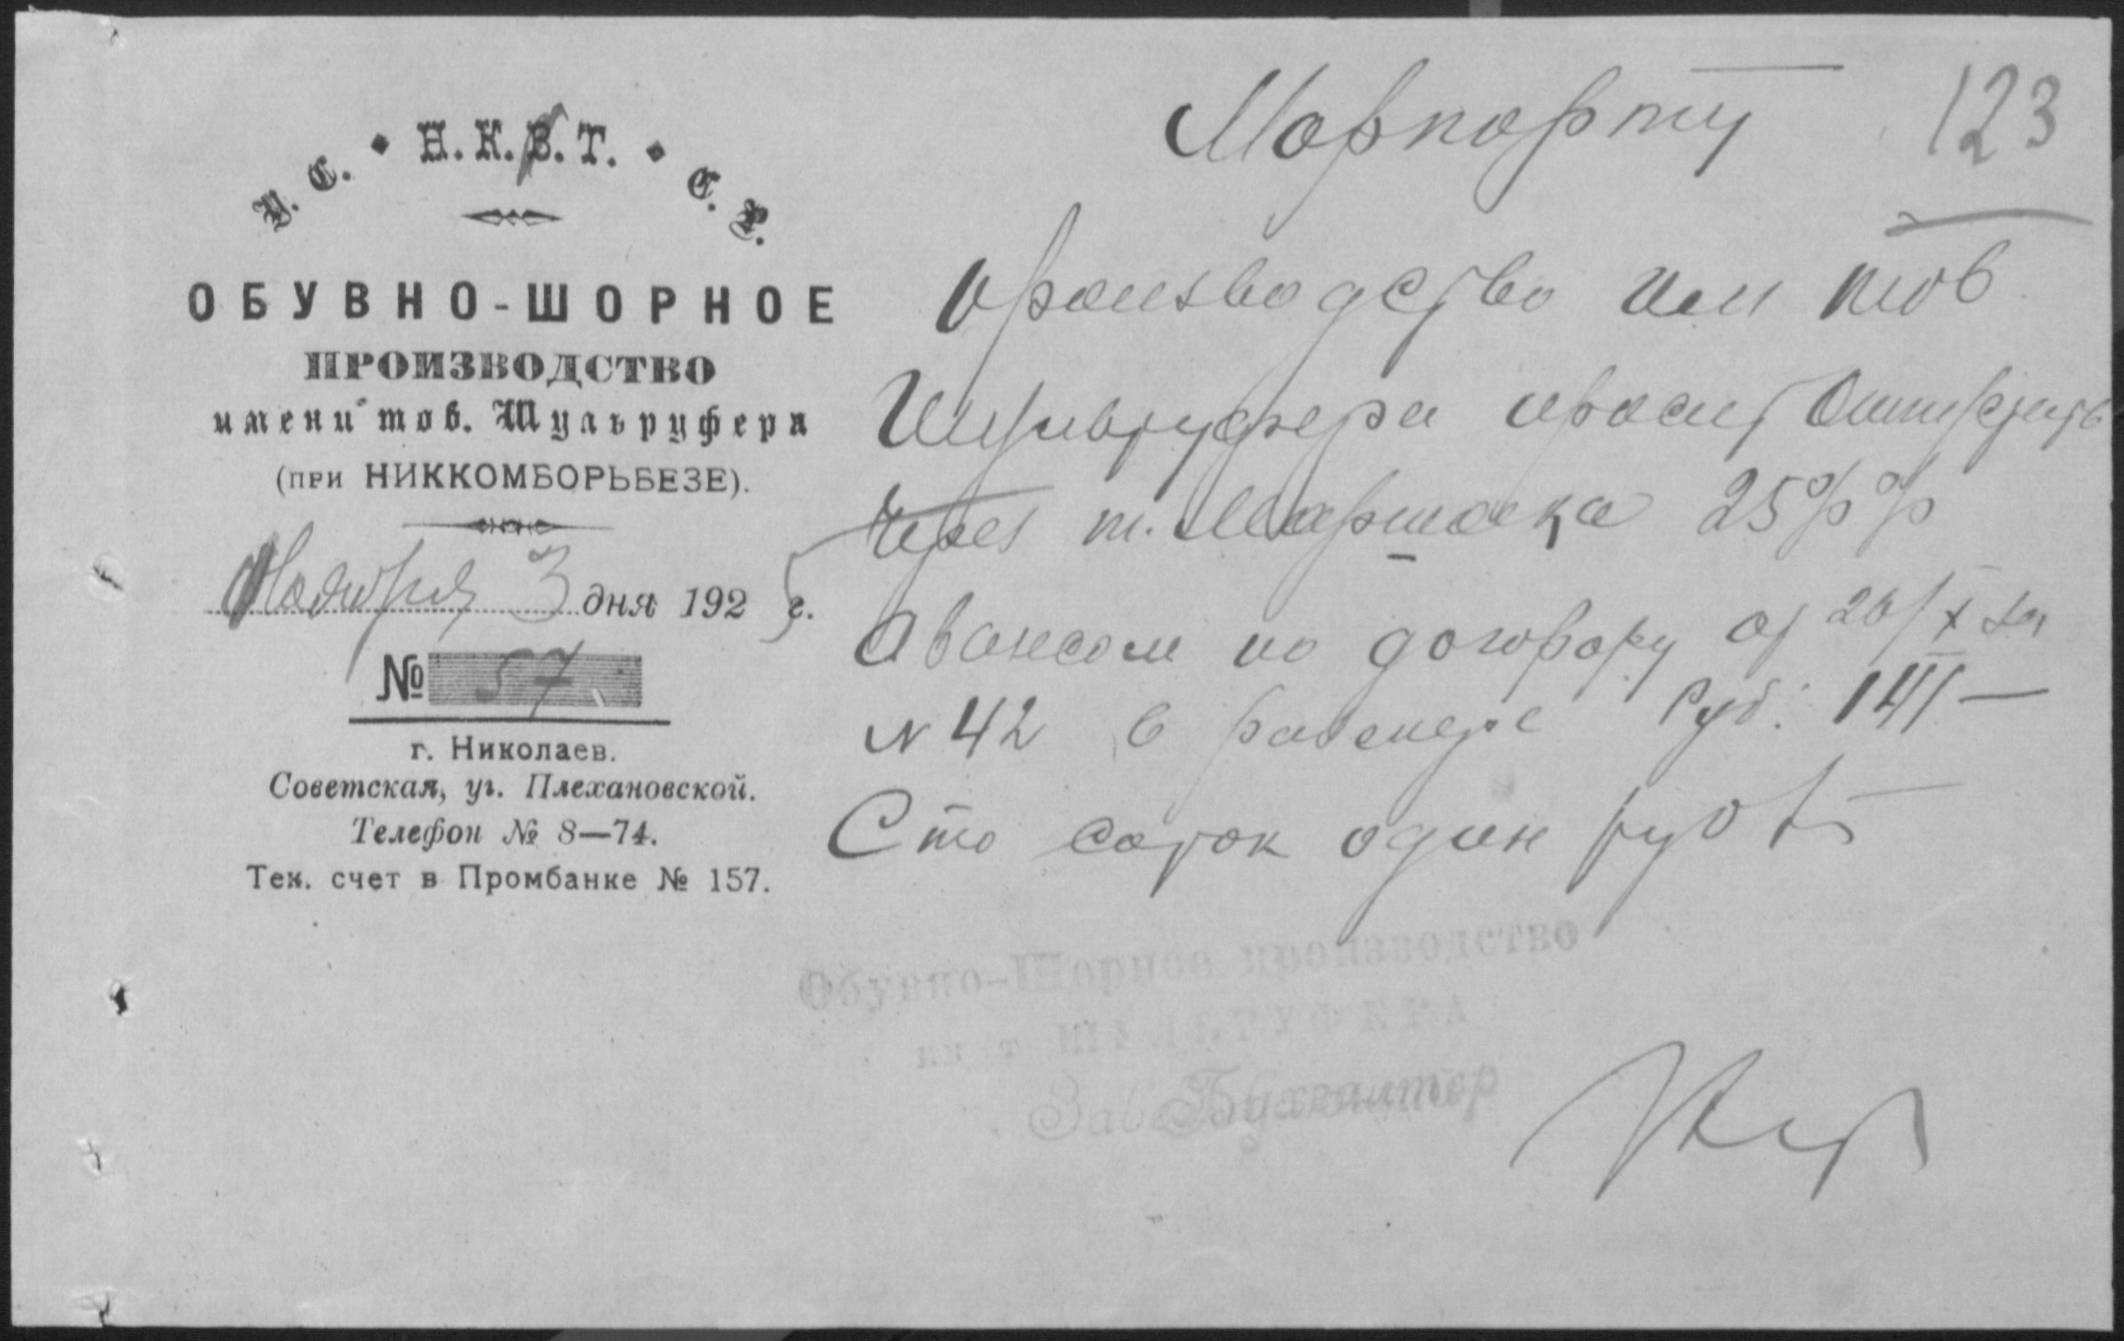 У. С. • Н. К. В. Т. • С. Р.
ОБУВНО-ШОРНОЕ
ПРОИЗВОДСТВО
имени тов. Шульруфера
(при НИККОМБОРЬБЕЗЕ).
Ноября 3 дня 192 г.
№ 57
г. Николаев.
Советская, уг. Плехановской.
Телефон № 8—74.
Тек. счет в Промбанке № 157.
123
Морпорту
Производство им тов
Шульруфера просит
Через т. Маршака 25%%
Авансом по договору от 26/X
№ 42 в размере Руб: 141 —
Сто сорок один руб
Обувно-Шорное производство
им т ШУЛЬРУФЕРА
Зав Бухгалтер